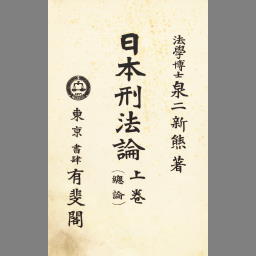 法學博士 泉二新熊 著
日本刑法論 上卷
(總論)
東京 書肆 有斐閣